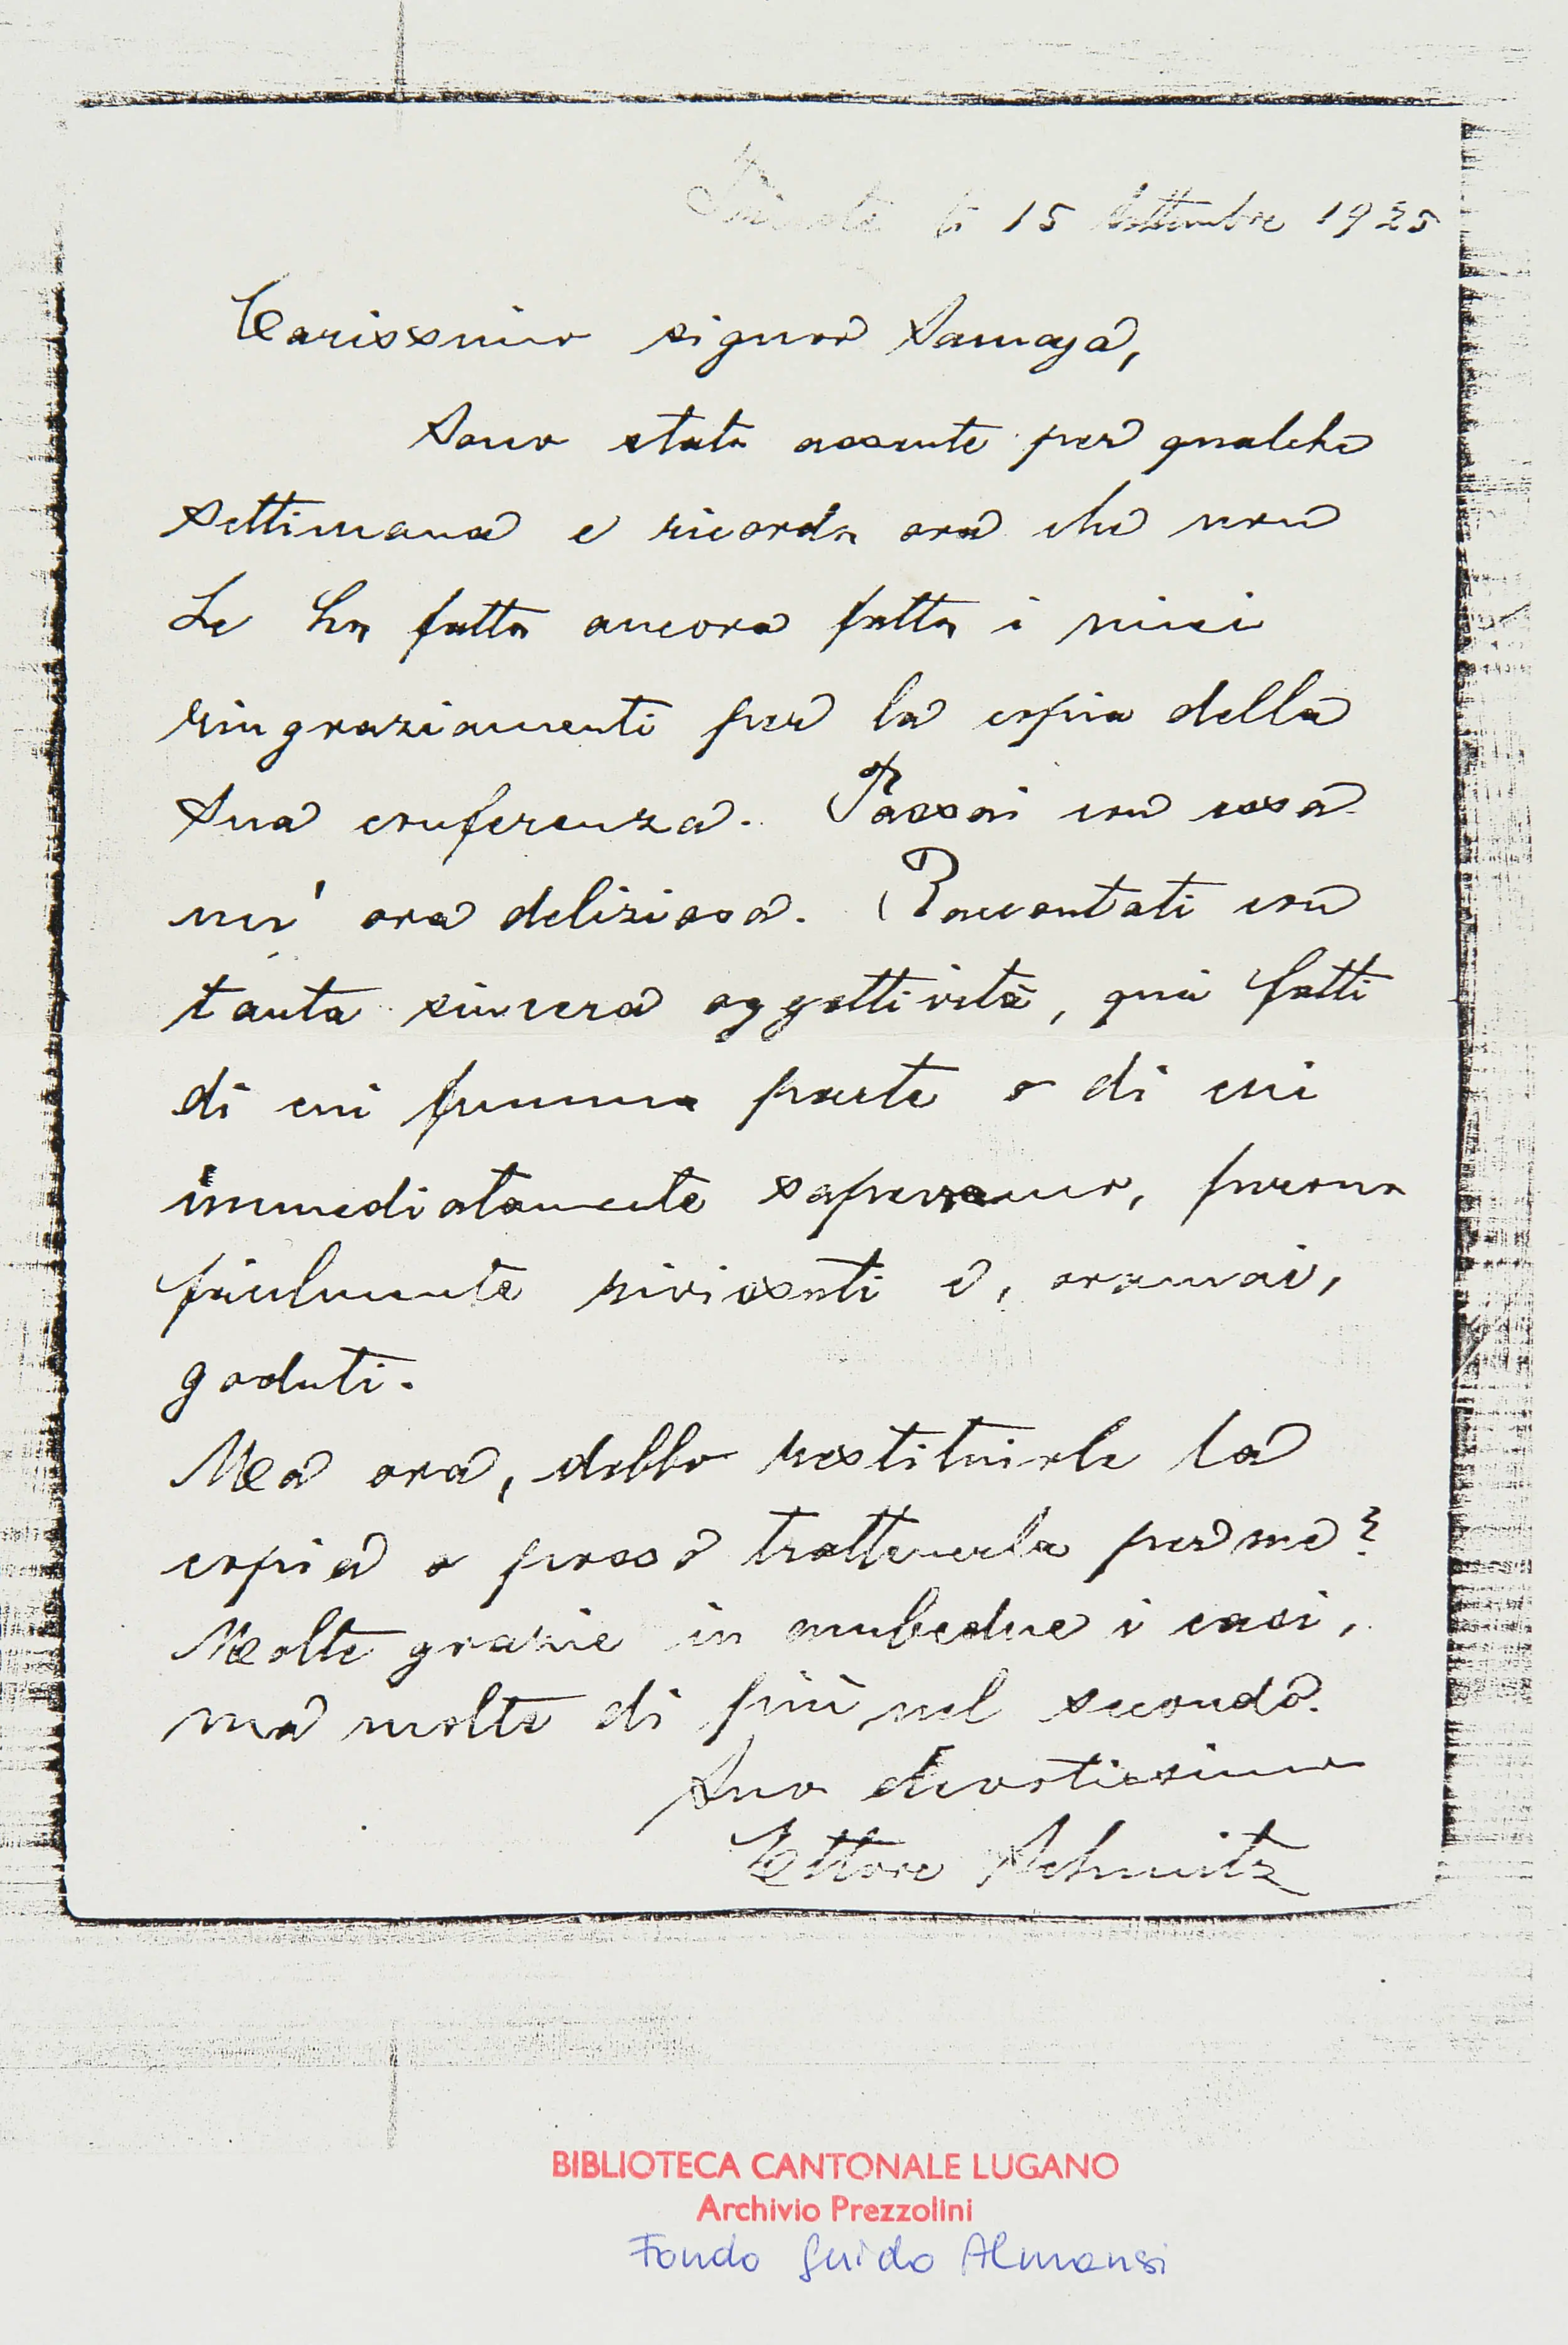 Trieste li 15 Settembre 1925
Carissimo signor Samaja,
Sono stato assente per qualche
settimana e ricordo ora che non
Le ho fatto ancora fatto i miei
ringraziamenti per la copia della
Sua conferenza. Passai con essa
un' ora deliziosa. Raccontati con
tanta sincera oggettività, quei fatti
di cui fummo parte o di cui
immediatamente sapevamo, furono
facilmente rivissuti e, oramai,
goduti.
Ma ora, debbo restituirle la
copia o posso trattenerla per me?
Molte grazie in ambedue i casi,
ma molte di più nel secondo.
Suo devotissimo
Ettore Schmitz
BIBLIOTECA CANTONALE LUGANO
Archivio Prezzolini
Fondo Guido Almansi